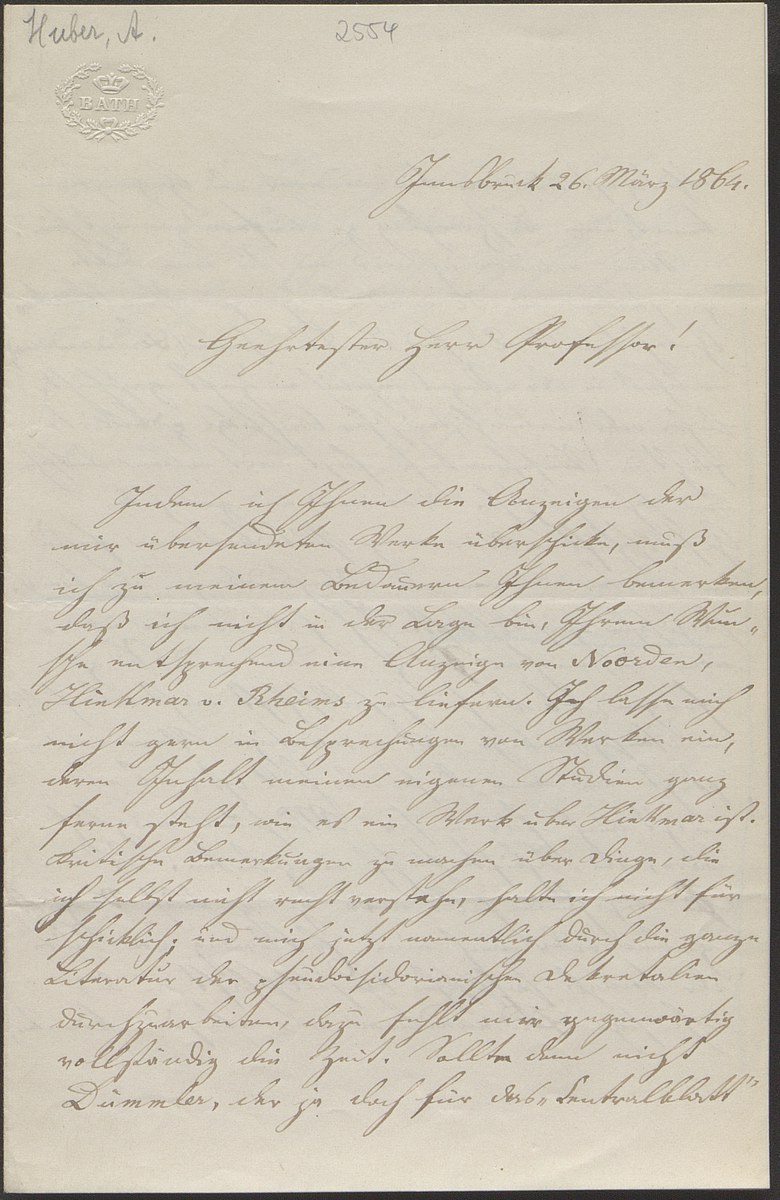 Huber, A.
2554
BATH
Innsbruck 26. März 1864.
Geehrtester Herr Professor!
Indem ich Ihnen die Anzeigen der
mir übersendeten Werke überschicke, muß
ich zu meinem Bedauern Ihnen bemerken,
daß ich nicht in der Lage bin, Ihrem Wun„
sche entsprechend eine Anzeige von Noorden,
Hinkmar v. Rheims zu liefern. Ich lasse mich
nicht gern in Besprechungen von Werken ein,
deren Inhalt meinen eigenen Studien ganz
ferne steht, wie es ein Werk über Hinkmar ist.
Kritische Bemerkungen zu machen über Dinge, die
ich selbst nicht recht verstehe, halte ich nicht für
schicklich; und mich jetzt namentlich durch die ganze
Literatur der pseudoisidorianischen Dekretalien
durchzuarbeiten, dazu fehlt mir gegenwärtig
vollständig die Zeit. Sollte denn nicht
Dümmler, der ja doch für das „Centralblatt"